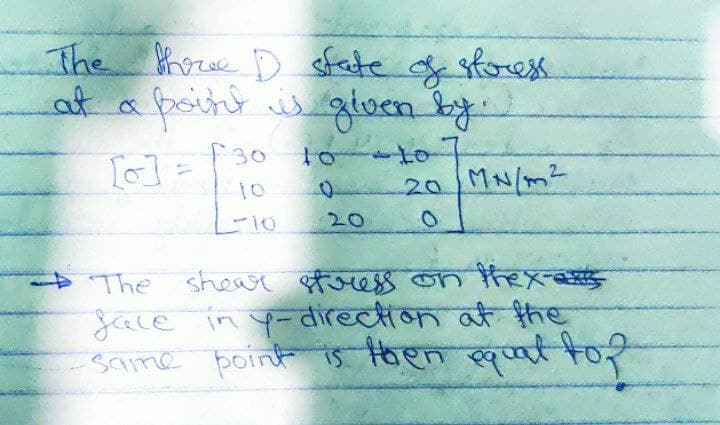 The three D state of stress
at a point is given by:
[σ] = [30 10 -10
10 0 20
-10 20 0] MN/m²
→ The shear stress on the x-axis
face in y-direction at the
same point is then equal to?